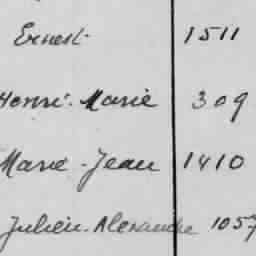 Ernest 1511
Henri-Marie 309
Marie-Jean 1410
Julien-Alexandre 1057